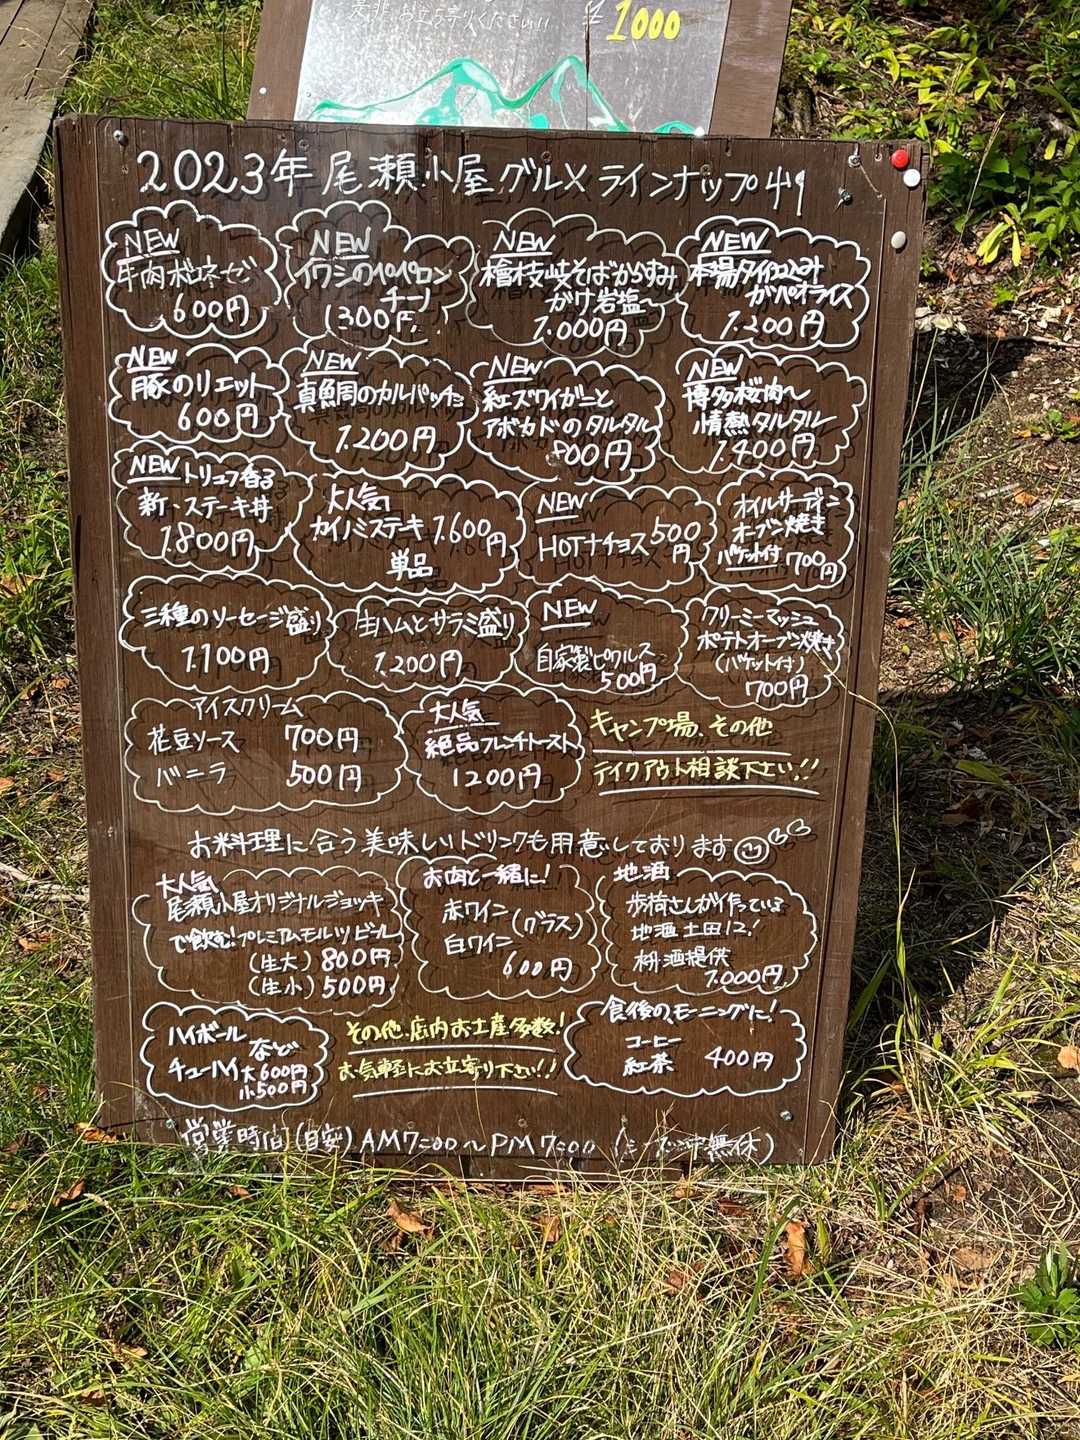 是非、お立ち寄りください!! ¥1000
2023年 尾瀬小屋グルメラインナップ
NEW
牛肉ボロネーゼ
600円
NEW
イワシのペペロン
チーノ
1300円
NEW
檜枝岐そばからすみ
がけ岩塩
1.000円
NEW
本場タイ
ガパオライス
1.200円
NEW
豚のリエット
600円
NEW
真鯛のカルパッチョ
1.200円
NEW
紅ズワイガニと
アボカドのタルタル
800円
NEW
博多桜肉〜
情熱タルタル
1.400円
NEW トリュフ香る
新・ステーキ丼
1.800円
大人気
カイノミステーキ 1.600円
単品
NEW
HOTナチョス 500円
オイルサーディン
オーブン焼き
バケット付 700円
三種のソーセージ盛り
1.100円
生ハムとサラミ盛り
1.200円
NEW
自家製ピクルス
500円
クリーミーマッシュ
ポテトオーブン焼き
(バケット付)
700円
アイスクリーム
花豆ソース 700円
バニラ 500円
大人気
絶品フレンチトースト
1200円
キャンプ場、その他
テイクアウト相談下さい!!
お料理に合う美味しいドリンクも用意しております
大人気
尾瀬小屋オリジナルジョッキ
で飲む!プレミアムモルツビール
(生大) 800円
(生小) 500円
お肉と一緒に!
赤ワイン
白ワイン (グラス)
600円
地酒
歩荷さんが作っている
地酒 土田12!
枡酒提供
1.000円
ハイボール
チューハイ など
大600円
小500円
その他、店内お土産多数!
お気軽にお立寄り下さい!!
食後の、モーニングに!
コーヒー
紅茶 400円
営業時間(目安) AM7:00〜PM7:00 (シーズン中無休)